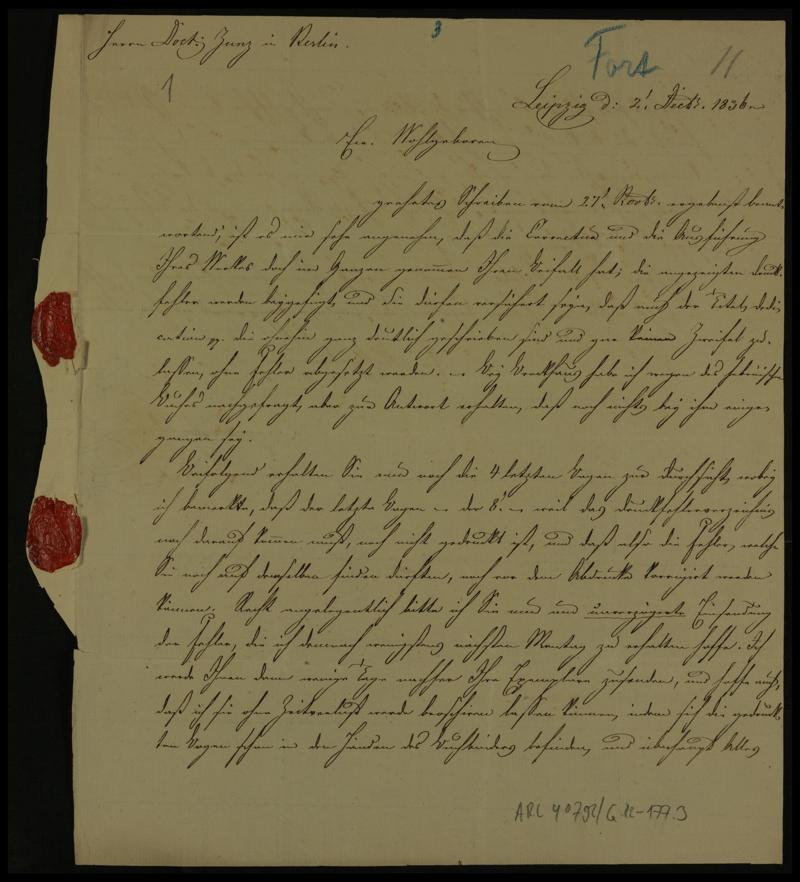 Herrn Doctor Zunz in Berlin.
3
Fort
11
1
Leipzig d: 2t Decbr. 1836
Ew. Wohlgeboren
geehrtes Schreiben vom 27t Novbr. ergebenst beant-
wortend, ist es mir sehr angenehm, daß die Correctur und die Ausführung
Ihres Werkes doch im Ganzen genommen Ihren Beifall hat; die angezeigten Druck-
fehler werden beygefügt, und Sie dürfen versichert seyn, daß auch der Titel, Dedi-
cation pp. die ohnehin ganz deutlich geschrieben sind und gar keinen Zweifel zu-
lassen, ohne Fehler abgesetzt werden. – Bey Brockhaus habe ich wegen des hebräischen
Buchs nachgefragt, aber zur Antwort erhalten, daß noch nichts bey ihm einge-
gangen sey.
Beifolgend erhalten Sie nun noch die 4 letzten Bogen zur Durchsicht, wobey
ich bemerke, daß der letzte Bogen – der 8. – weil das Druckfehlerverzeichniß
noch darauf kommen muß, noch nicht gedruckt ist, und daß also die Fehler, welche
Sie noch auf demselben finden dürften, noch vor dem Abdrucke korrigirt werden
können. Recht angelegentlich bitte ich Sie nun um unverzögerte Einsendung
der Fehler, die ich demnach wenigstens nächsten Montag zu erhalten hoffe. Ich
werde Ihnen dann wenige Tage nachher Ihre Exemplare zusenden, und hoffe auch,
daß ich sie ohne Zeitverlust werde broschiren lassen können, indem sich die gedruck-
ten Bogen schon in den Händen des Buchbinders befinden, und überhaupt Alles
ARC 4° 792/G 12-177.3